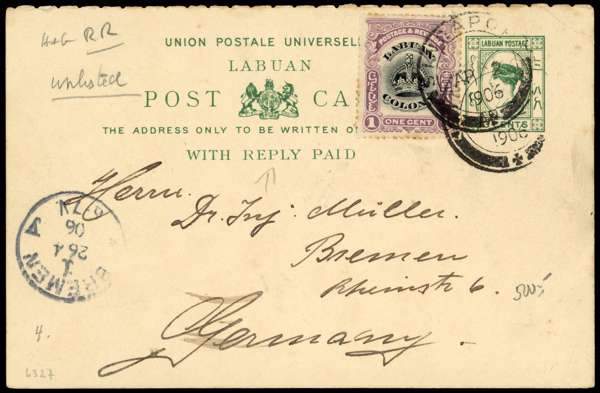 H&G RR
unlisted
UNION POSTALE UNIVERSELLE
LABUAN
POST CA
THE ADDRESS ONLY TO BE WRITTEN
WITH REPLY PAID
POSTAGE & REVENUE
LABUAN
COLONY
1 ONE CENT 1
LABUAN POSTAGE
CENTS
SINGAPO
1906
1906
Herrn
Dr. Ing. Müller.
Bremen
Rheinstr 6.
Germany.
BREMEN
1
26 4
06
6-7V
4.
6327